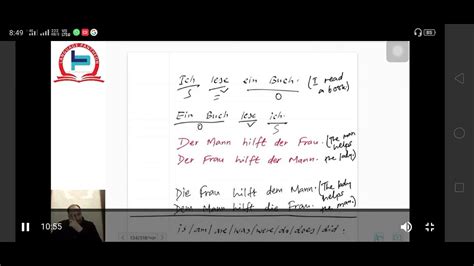 8:49
85
LANGUAGE PARTNER
Ich lese ein Buch. (I read a book)
S O
Ein Buch lese ich.
O S
Der Mann hilft der Frau. (The man helps the lady)
Der Frau hilft der Mann.
Die Frau hilft dem Mann. (The lady helps the man.)
Dem Mann hilft die Frau.
is/am/are/was/were/do/does/did.
10:55